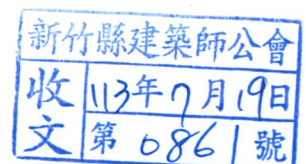 新竹縣建築師公會
收文
113年7月19日
第0861號